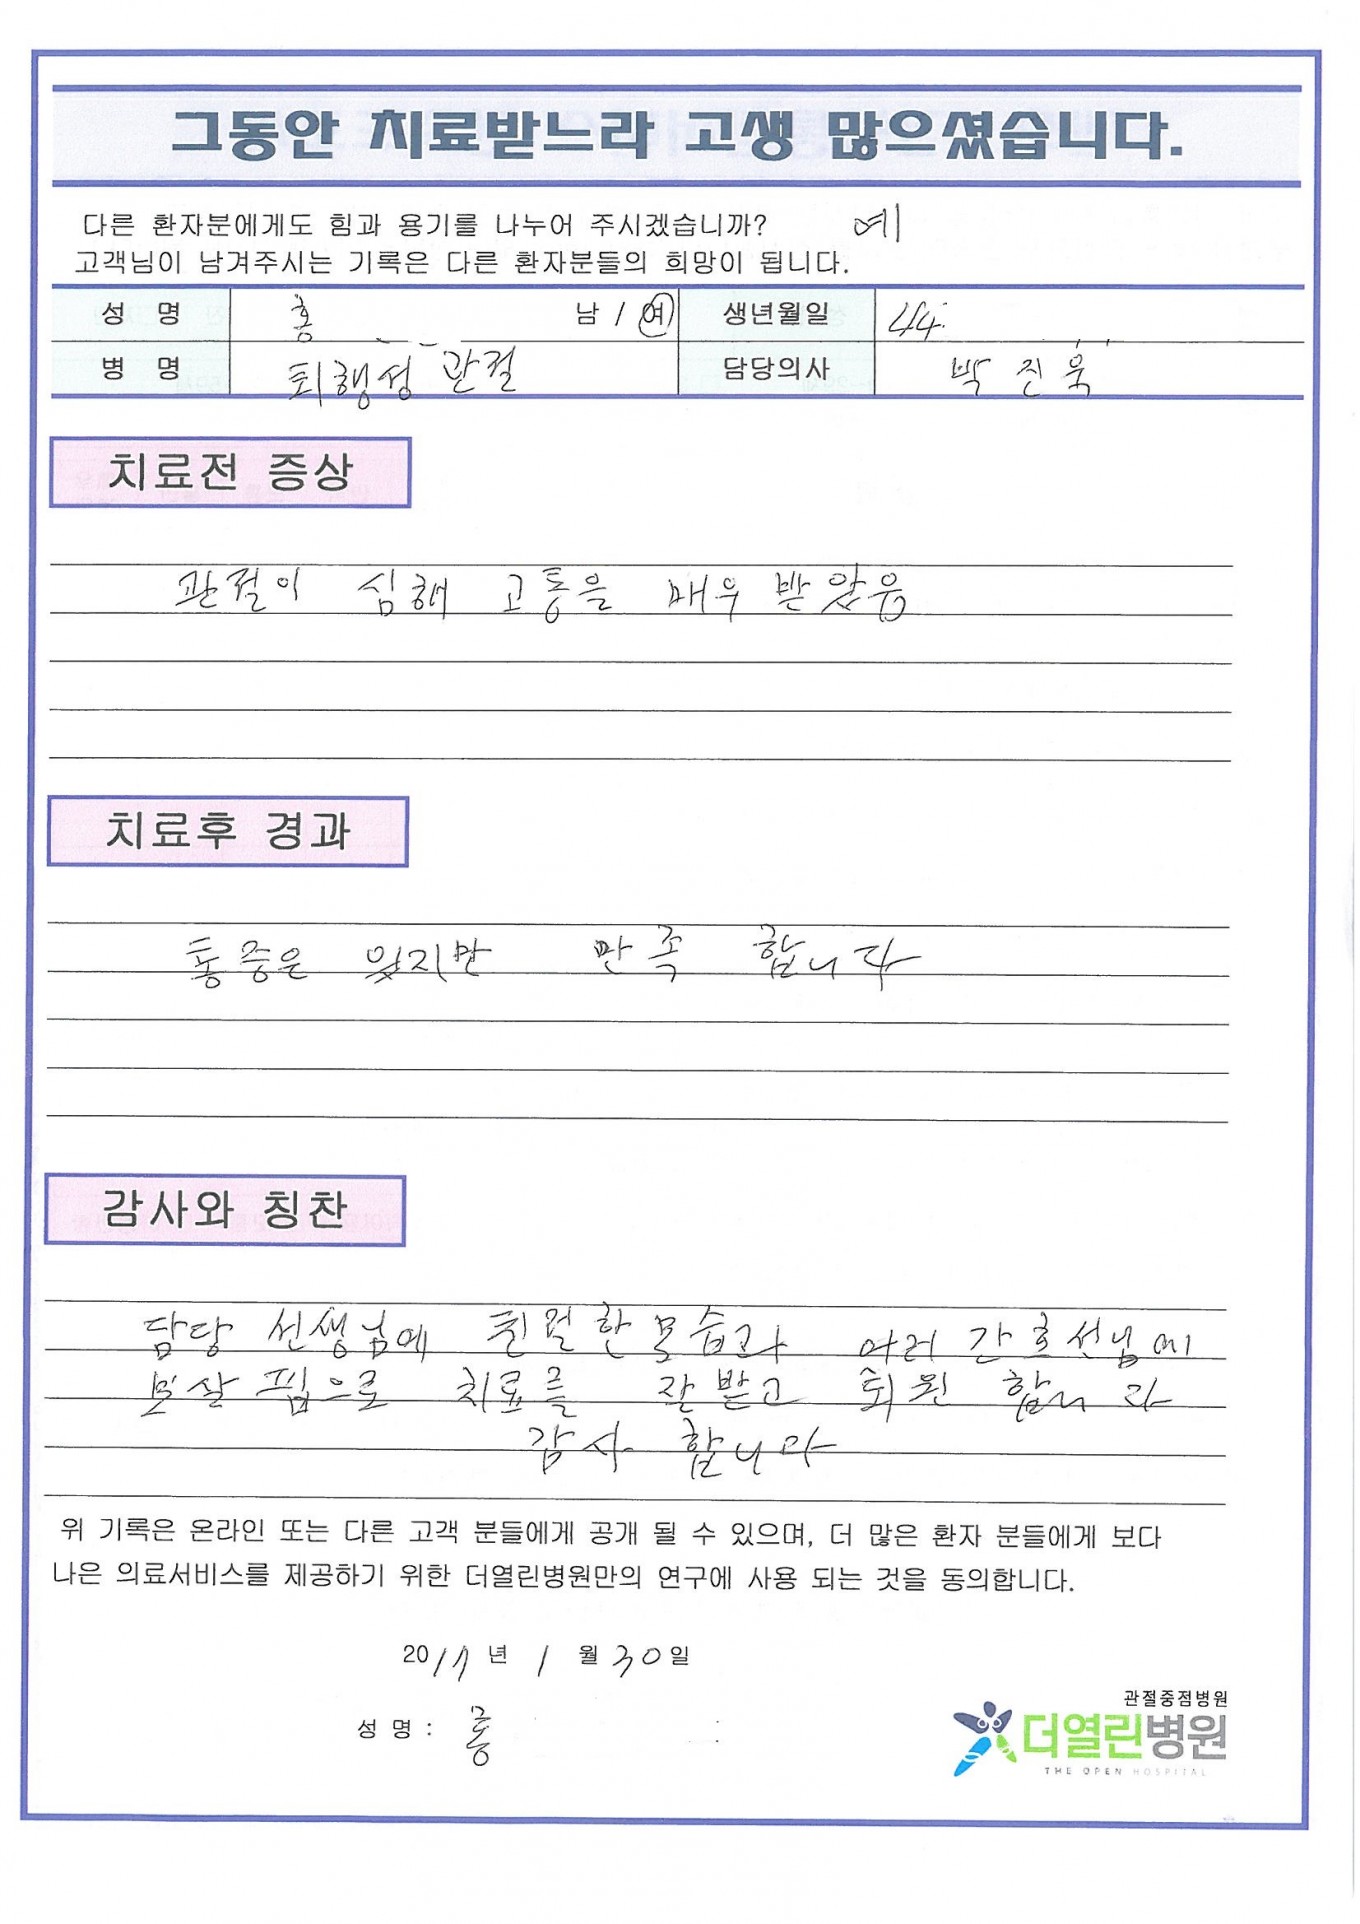 그동안 치료받느라 고생 많으셨습니다.
다른 환자분에게도 힘과 용기를 나누어 주시겠습니까? 예
고객님이 남겨주시는 기록은 다른 환자분들의 희망이 됩니다.
성 명 홍 남 / 여 생년월일 44.
병 명 퇴행성 관절 담당의사 박진욱
치료전 증상
관절이 심해 고통을 매우 받았음
치료후 경과
통증은 있지만 만족 합니다
감사와 칭찬
담당 선생님에 친절한 모습과 여러 간호선님에
보살핌으로 치료를 잘 받고 퇴원 합니다
감사 합니다
위 기록은 온라인 또는 다른 고객 분들에게 공개 될 수 있으며, 더 많은 환자 분들에게 보다
나은 의료서비스를 제공하기 위한 더열린병원만의 연구에 사용 되는 것을 동의합니다.
2017년 1월 30일
성 명 : 홍
관절중점병원
더열린병원
THE OPEN HOSPITAL